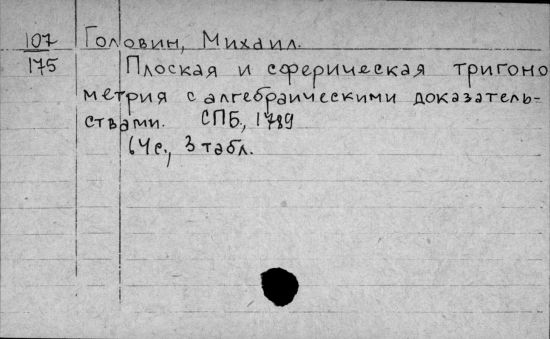 107 Головин, Михаил.
175 Плоская и сферическая тригоно
метрия с алгебраическими доказатель=
ствами. СПБ., 1789
64с., 3 табл.